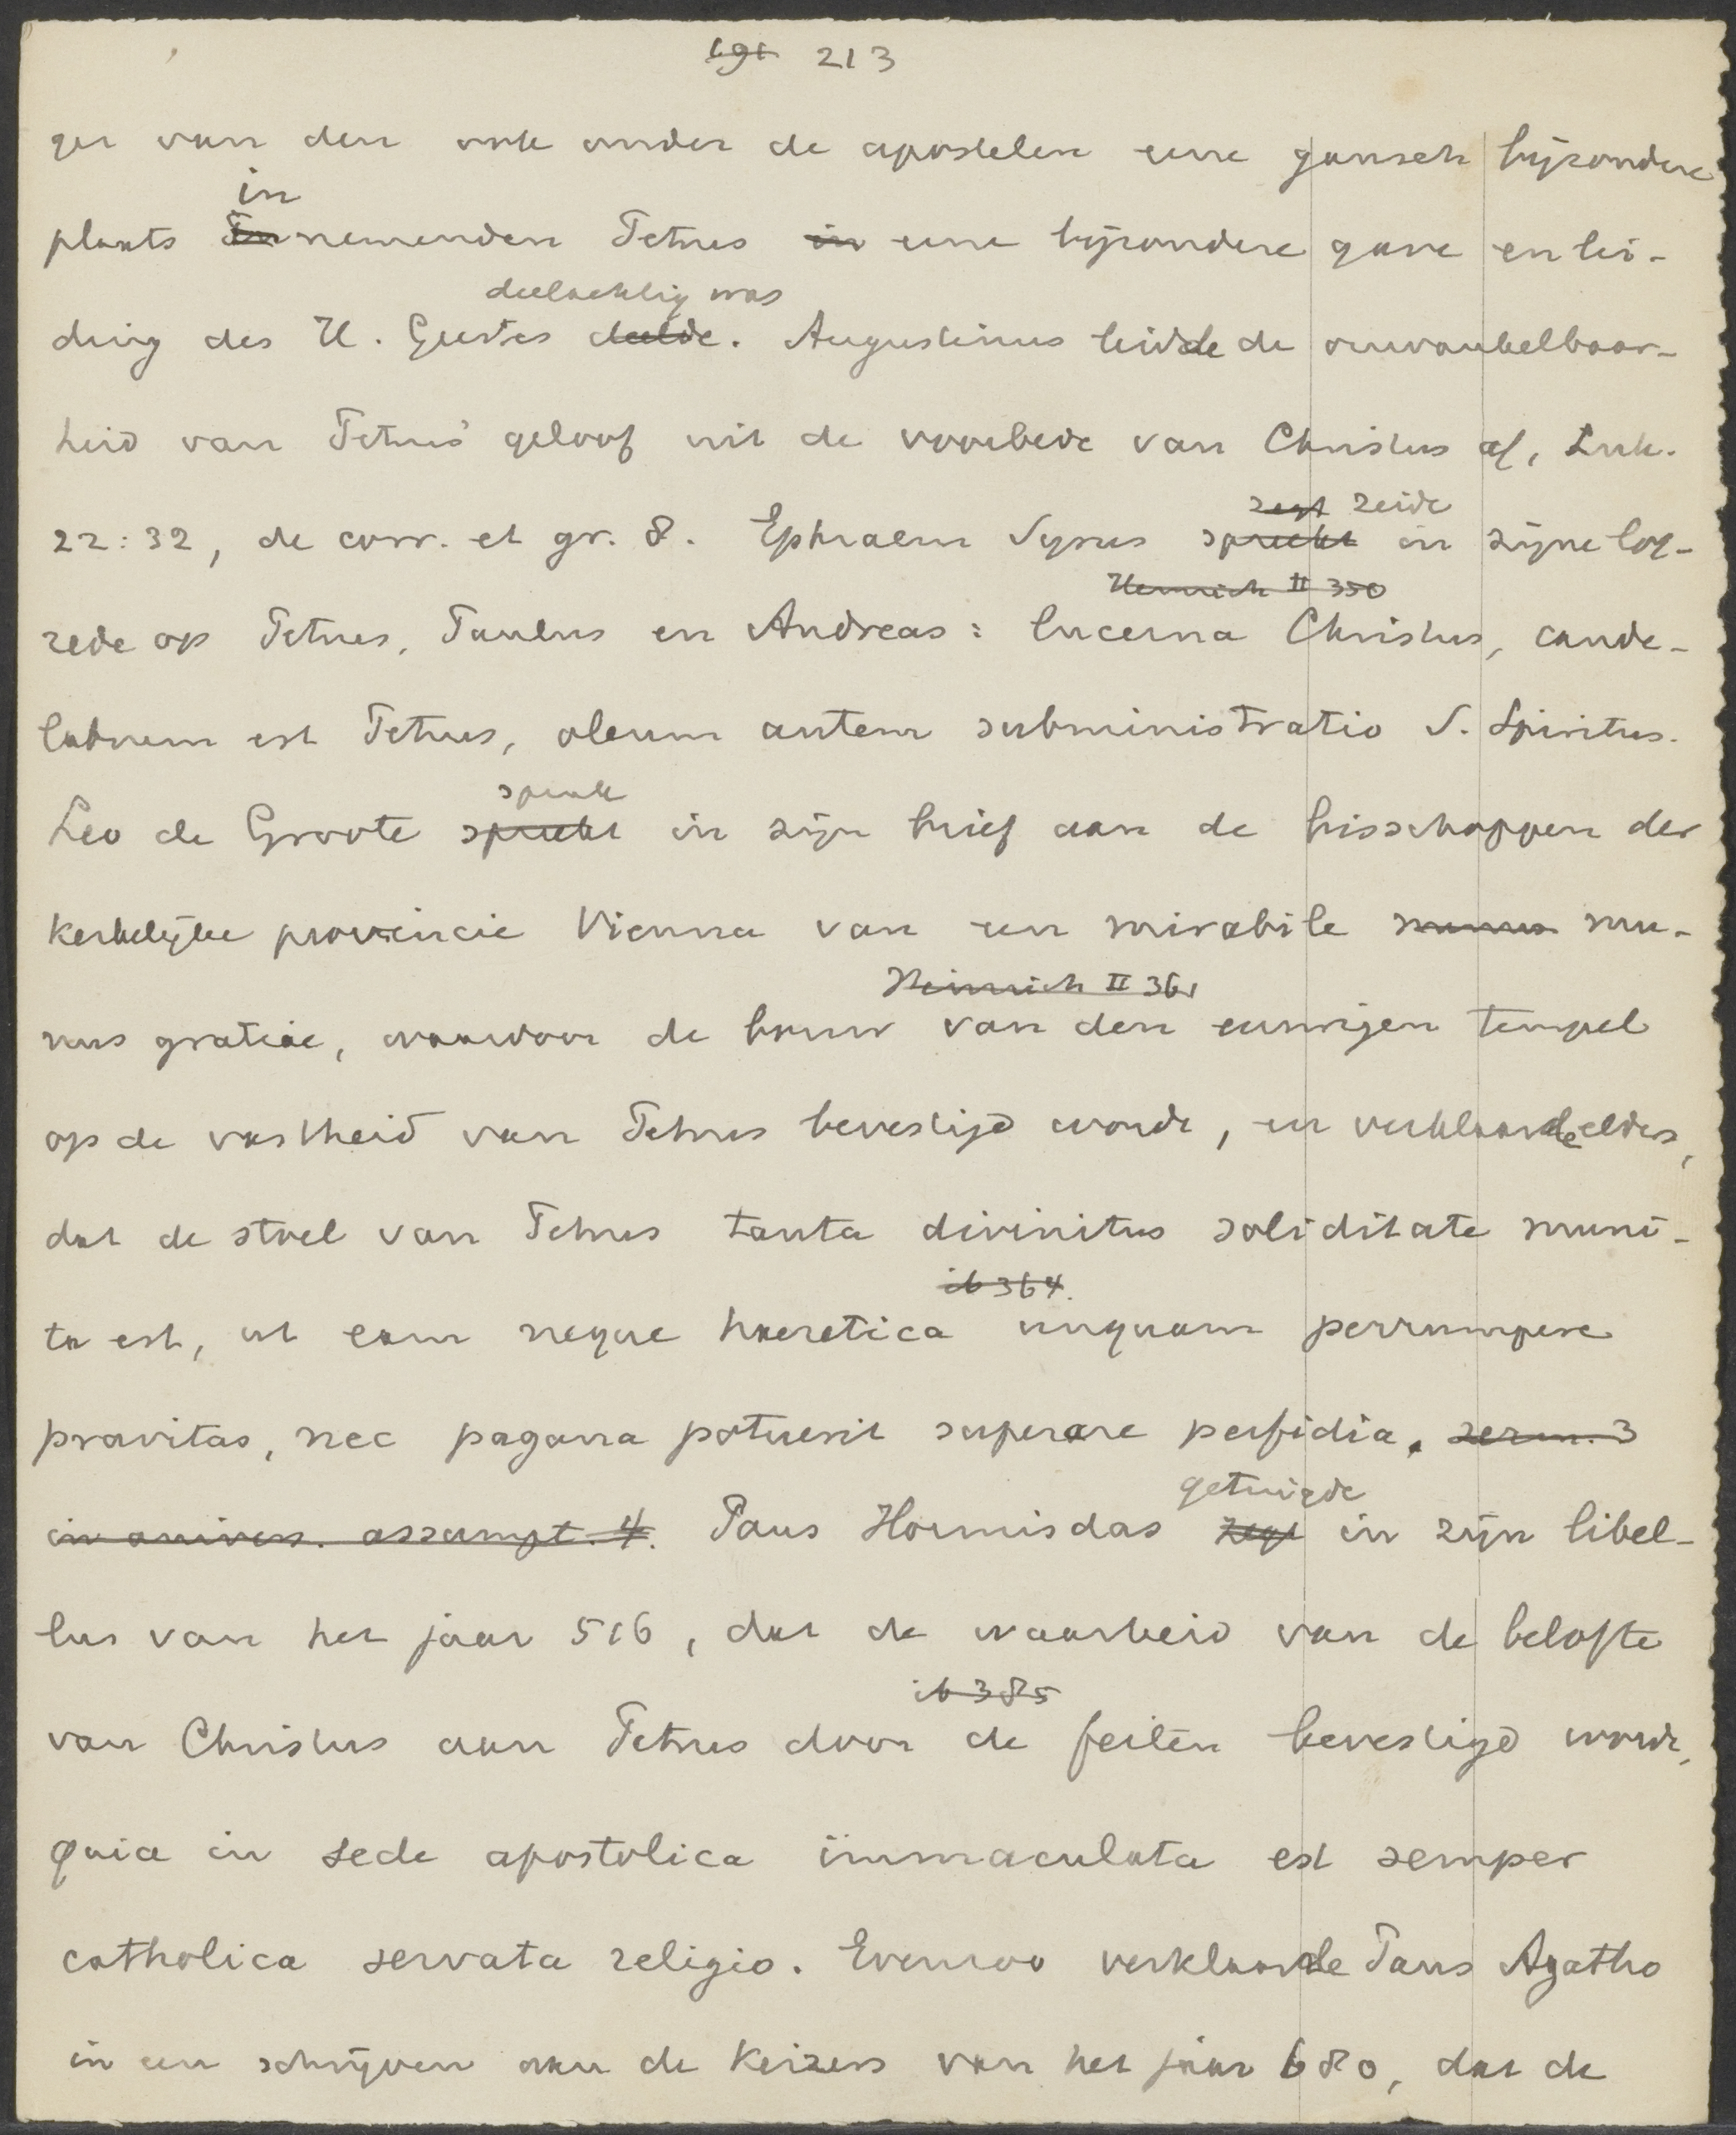 191 213
ger van den ook onder de apostelen eene gansch bijzondere
in
plaats En nemenden Petrus in eene bijzondere gave en lei-
deelachtig was
ding des H. Geestes deelde. Augustinus leidde de onwankelbaar-
heid van Petrus' geloof uit de voorbede van Christus af, Luk.
zegt zeide
22:32, de corr. et gr. 8. Ephraem Syrus spreekt in zijne lof-
Heinrich II 350
rede op Petrus, Paulus en Andreas: lucerna Christus, cande-
labrum est Petrus, oleum autem subministratio S. Spiritus.
sprak
Leo de Groote spreekt in zijn brief aan de bisschoppen der
kerkelijke provincie Vienna van een mirabile munus mu-
Heinrich II 361
nus gratiae, waardoor de bouw van den eeuwigen tempel
op de vastheid van Petrus bevestigd wordt, en verklaarde elders,
dat de stoel van Petrus tanta divinitus soliditate muni-
ib 364.
ta est, ut eam neque haeretica unquam perrumpere
pravitas, nec pagana potuerit superare perfidia. serm. 3
getuigde
in anivers. assumpt. 4. Paus Hormisdas zegt in zijn libel-
lus van het jaar 516, dat de waarheid van de belofte
ib 385
van Christus aan Petrus door de feiten bevestigd wordt,
quia in sede apostolica immaculata est semper
catholica servata religio. Evenzoo verklaarde Paus Agatho
in een schrijven aan de Keizers van het jaar 680, dat de